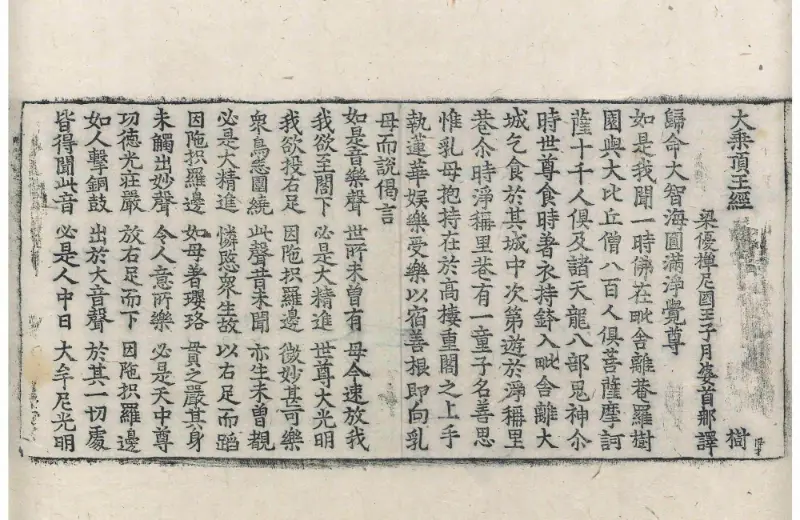 大乘頂王經 樹
梁優禪尼國王子月婆首那譯
歸命大智海圓滿淨覺尊
如是我聞一時佛在毗舍離菴羅樹
園與大比丘僧八百人俱菩薩摩訶
薩十千人俱及諸天龍八部鬼神尒
時世尊食時著衣持鉢入毗舍離大
城乞食於其城中次第遊於淨稱里
巷尒時淨稱里巷有一童子名善思
惟乳母抱持在於高樓重閣之上手
執蓮華娛樂受樂以宿善根即向乳
母而說偈言
如是音樂聲 世所未曾有 母今速放我
我欲至閣下 必是大精進 世尊大光明
我欲投右足 因陁抧羅邊 微妙甚可樂
衆鳥悉圍繞 此聲昔未聞 亦生未曾覩
必是大精進 憐愍衆生故 以右足而蹈
因陁抧羅邊 如母著瓔珞 貫之嚴其身
未觸出妙聲 令人意所樂 必是天中尊
功德光莊嚴 放右足而下 因陁抧羅邊
如人擊銅鼓 出於大音聲 於其一切處
皆得聞此音 必是人中日 大牟尼光明